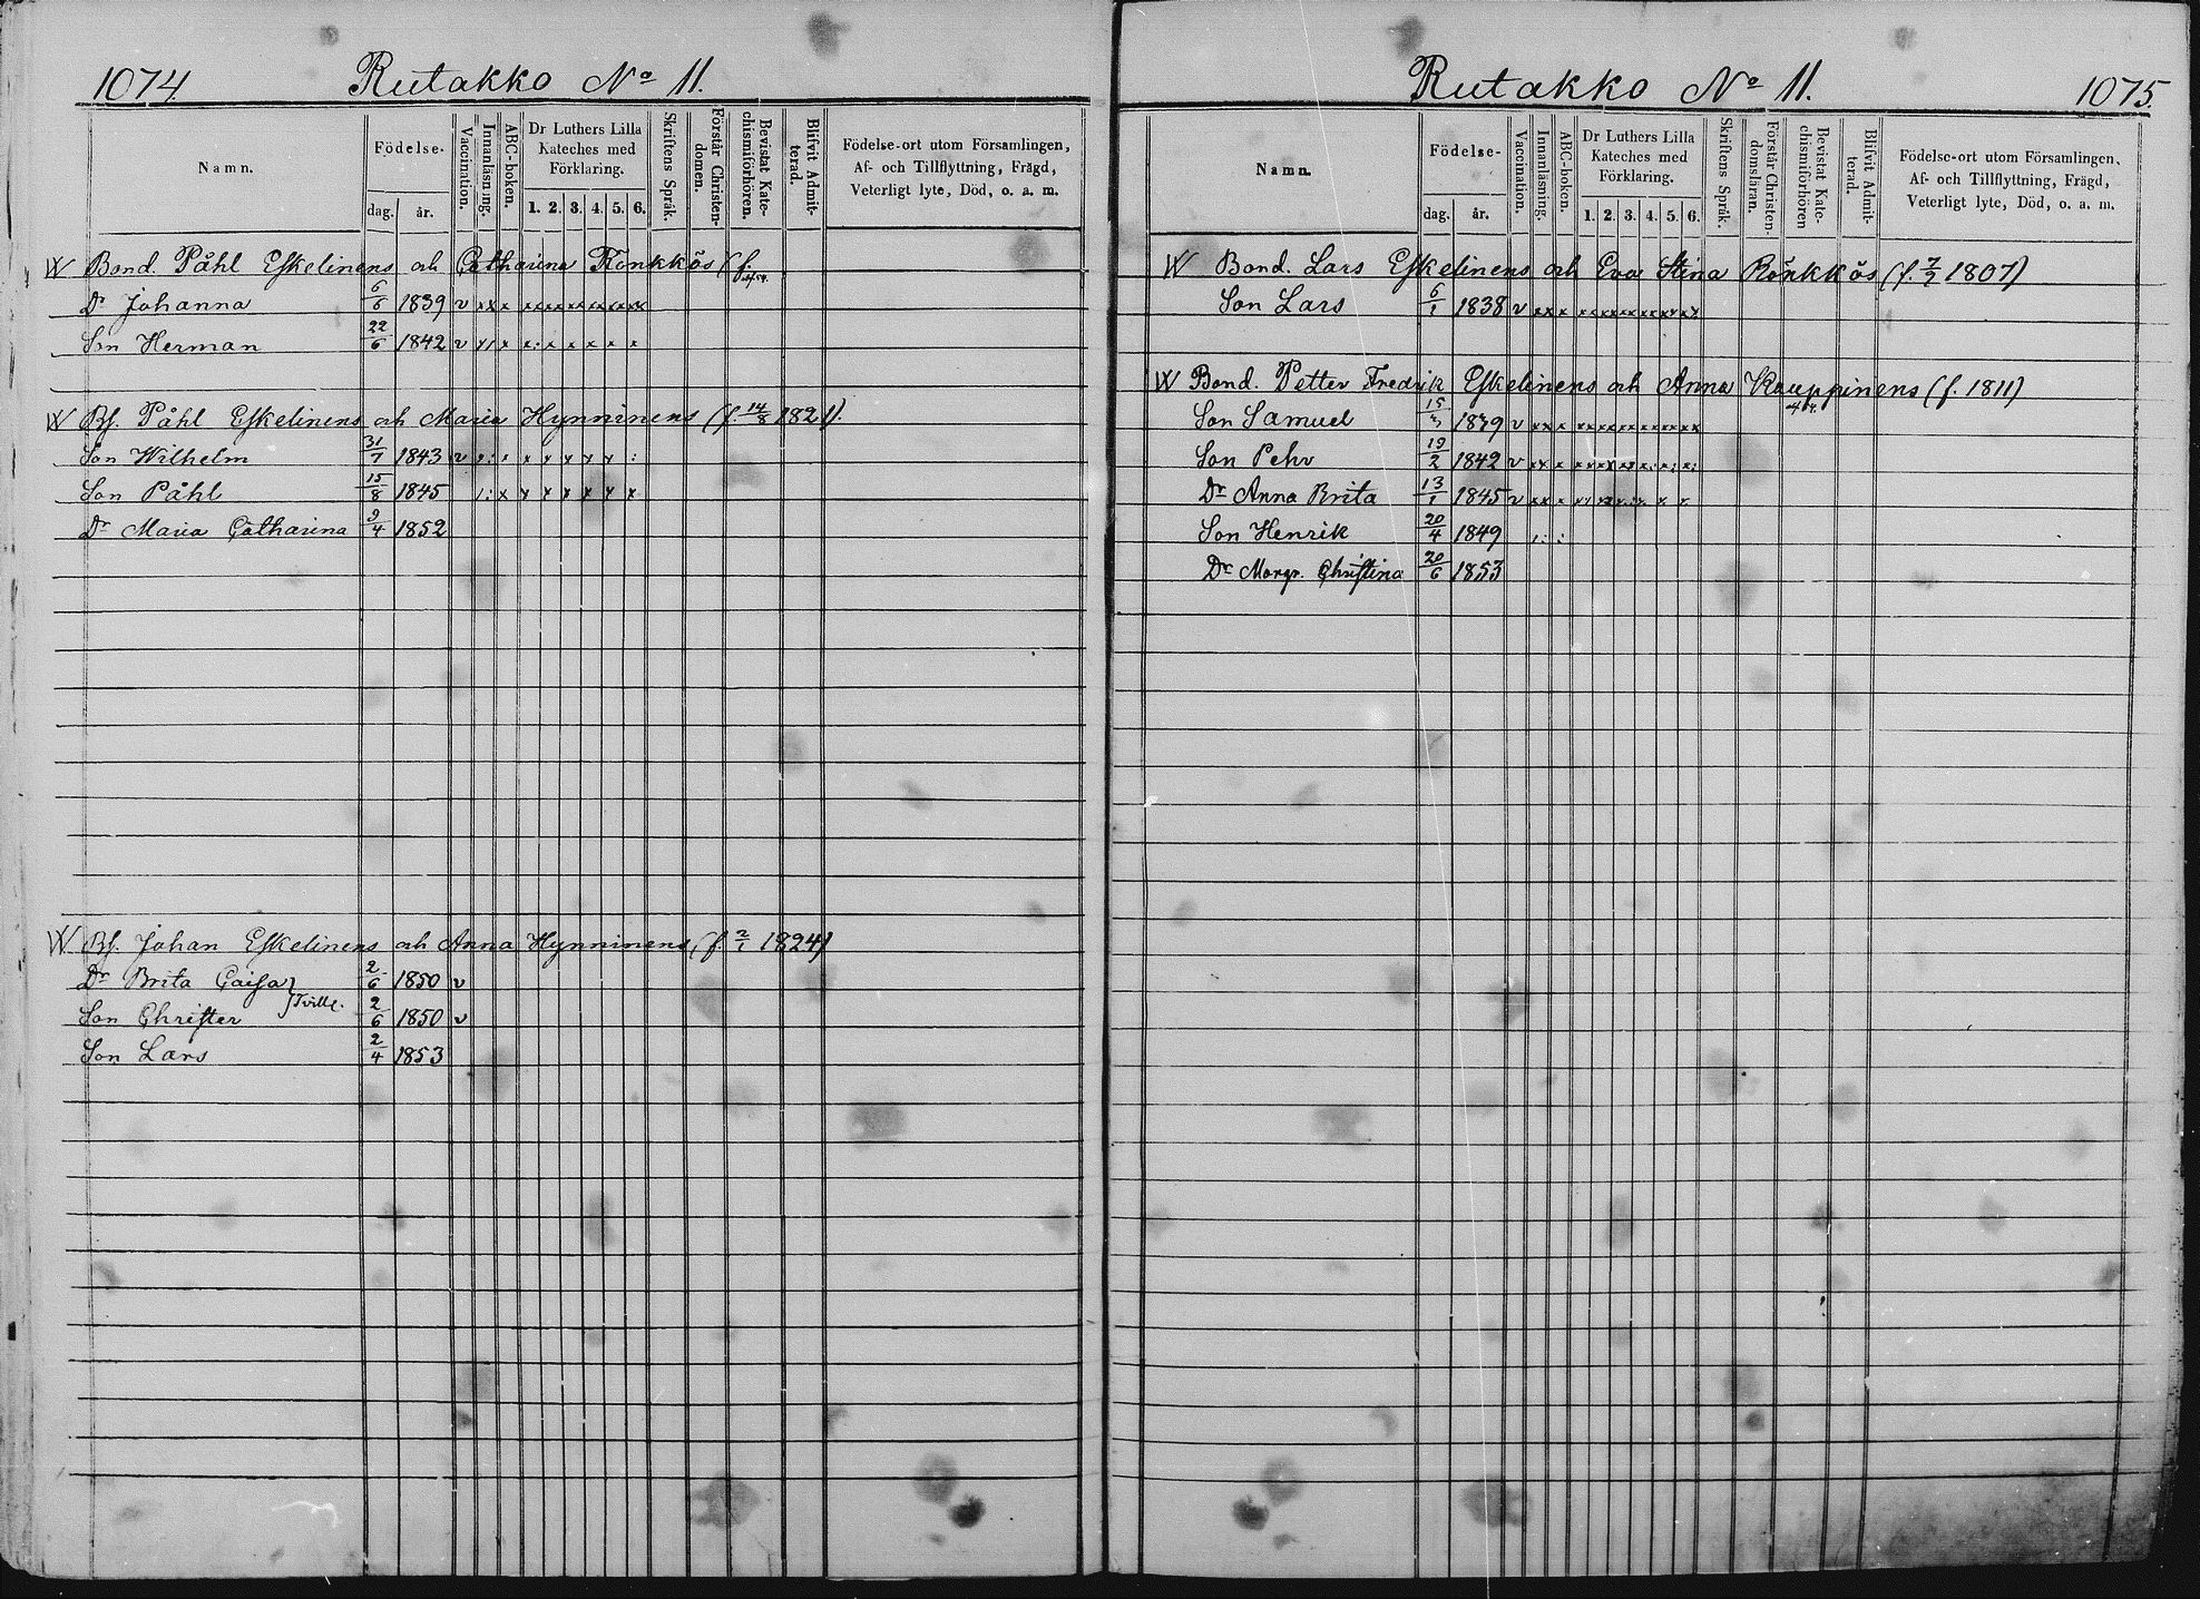 1074 Rutakko No 11.
Namn. Födelse- dag. år. Vaccination. Innanläsning. ABC-boken. Dr Luthers Lilla Kateches med Förklaring. 1. 2. 3. 4. 5. 6. Skriftens Språk. Förstår Christendomen. Bevistat Katechismiförhören. Blifvit Admitterad. Födelse-ort utom Församlingen, Af- och Tillflyttning, Frägd, Veterligt lyte, Död, o. a. m.
W Bond. Påhl Eskelinens och Catharina Rönkkös (f.
Dr Johanna 6/6 1839 v xx x xx xx xx xx xx xx
Son Herman 22/6 1842 v x/ x x: x x x x x
W Bf. Påhl Eskelinens och Maria Hynninens (f. 14/8 1821).
Son Wilhelm 31/7 1843 v x: x x x x x x :
Son Påhl 15/8 1845 /: x x x x x x x
Dr Maria Catharina 9/4 1852
W. Bf. Johan Eskelinens och Anna Hynninens (f. 2/1 1824)
Dr Brita Caisa } 2/6 1850 v
Tvill.
Son Christer 2/6 1850 v
Son Lars 2/4 1853
Rutakko No 11. 1075.
Namn. Födelse- dag. år. Vaccination. Innanläsning. ABC-boken. Dr Luthers Lilla Kateches med Förklaring. 1. 2. 3. 4. 5. 6. Skriftens Språk. Förstår Christendomsläran. Bevistat Katechismiförhören Blifvit Admitterad. Födelse-ort utom Församlingen, Af- och Tillflyttning, Frägd, Veterligt lyte, Död, o. a. m.
W Bond. Lars Eskelinens och Eva Stina Rönkkös (f. 7/7 1807)
Son Lars 6/1 1838 v xx x xx xx xx xx xx xx
W Bond. Petter Fredrik Eskelinens och Anna Kauppinens (f. 1811)
Son Samuel 15/3 1839 v xx x xx xx xx xx xx xx
Son Pehr 19/2 1842 v xx x xx xx xx x: x: x:
Dr Anna Brita 13/1 1845 v xx x xx xx x: x x
Son Henrik 20/4 1849 /: :
Dr Margr. Christina 20/6 1853